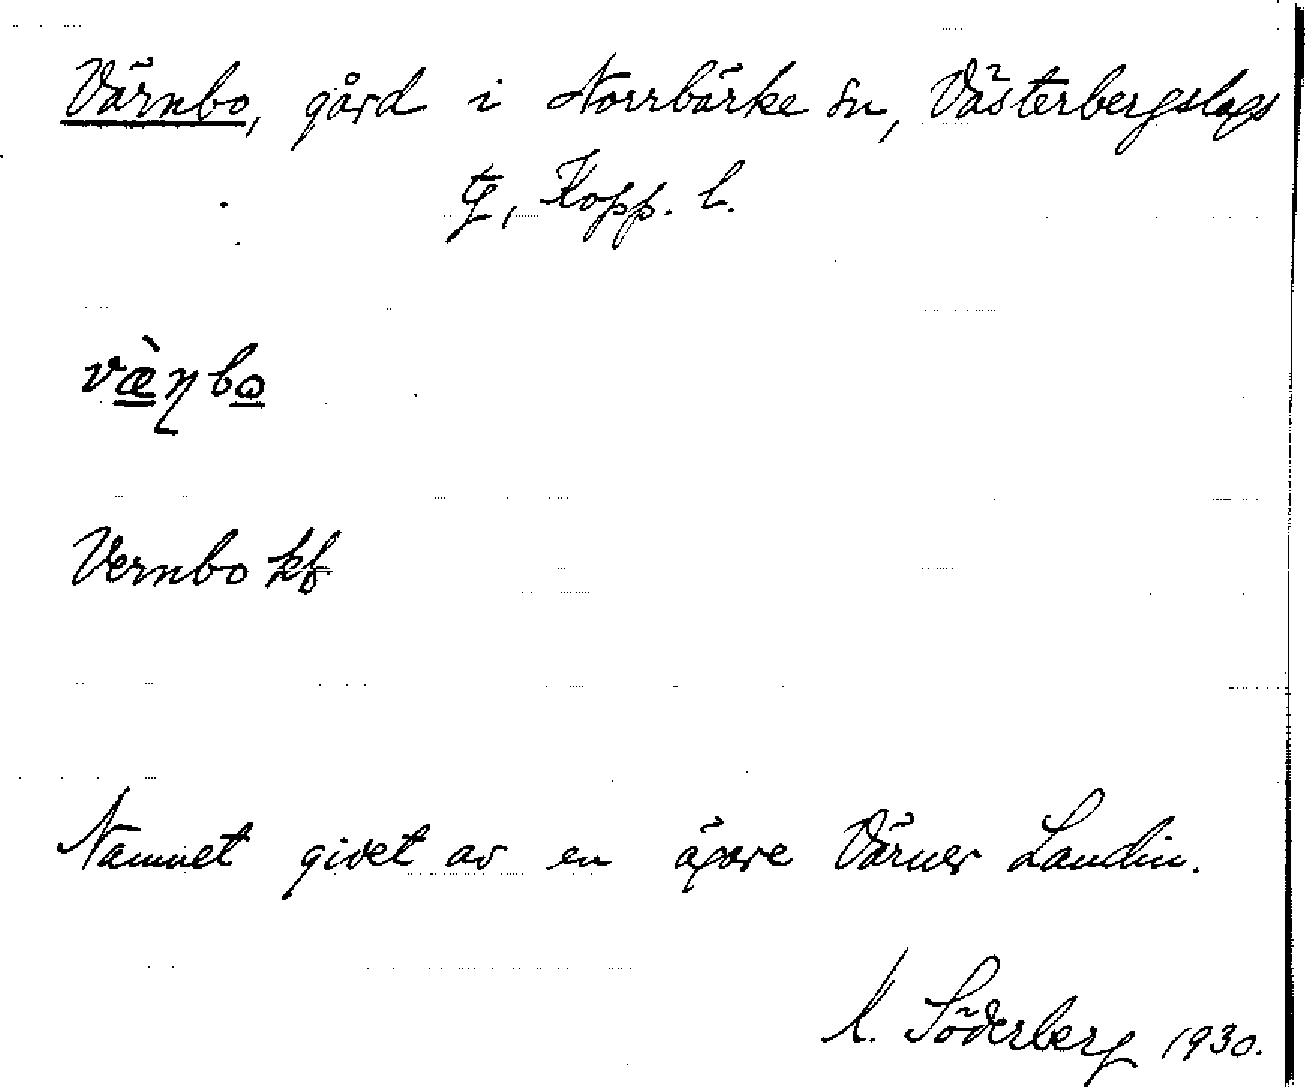 Värnbo, gård i Norrbärke sn, Västerbergslags
tg, Kopp. l.
væ̀ɳbɷ
Vernbo kf
Namnet givet av en ägare Värner Landin.
K. Söderberg 1930.